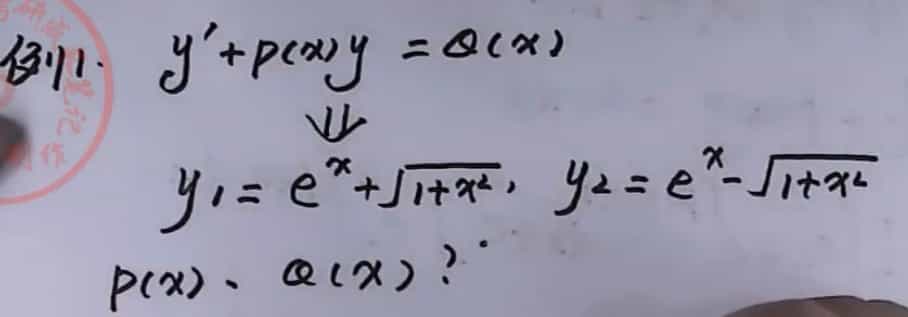 例1. y'+p(x)y=Q(x)
⇓
y₁=eˣ+√(1+x²), y₂=eˣ-√(1+x²)
p(x)、Q(x)?